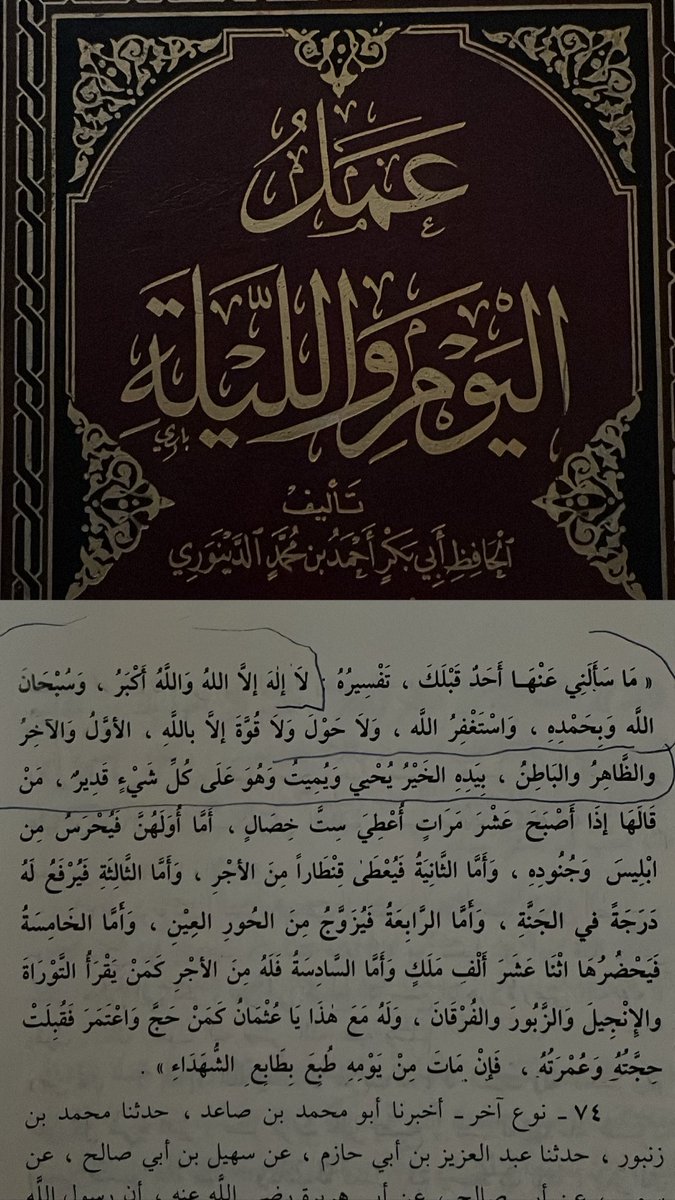 عَمَلُ
اليَوْمِ وَاللَّيْلَةِ
باري
تَأليف
الحَافِظِ أَبِي بَكْرٍ أَحْمَدُ بن مُحَمَّدٍ الدِّيْنَوَرِي
« مَا سَأَلَنِي عَنْهَـا أَحَدٌ قَبْلَكَ ، تَفْسِيرُهُ : لاَ إِلٰهَ إلاَّ اللهُ وَاللَّهُ أَكْبَرُ ، وَسُبْحَانَ
اللَّه وَبِحَمْدِهِ ، وَاسْتَغْفِرُ اللَّه ، وَلاَ حَوْلَ وَلاَ قُوَّةَ إلاَّ بـاللَّهِ ، الأوَّلُ وَالآخِرُ
والظَّاهِرُ والبَاطِنُ ، بِيَدِهِ الخَيْرُ يُحْيي وَيُمِيتُ وَهُوَ عَلَى كُلِّ شَيْءٍ قَدِيرٌ ، مَنْ
قَالَهَا إذَا أَصْبَحَ عَشْرَ مَرَاتٍ أُعْطِيَ سِتَّ خِصَالٍ ، أَمَّا أُوَلَهُنَّ فَيُحْرَسُ مِن
ابْلِيسَ وَجُنُودِهِ ، وَأَمَّا الثَّانِيَةُ فَيُعْطَىٰ قِنْطَاراً مِنَ الأجْرِ ، وَأَمَّا الثَّالِثَةِ فَيُرْفَعُ لَهُ
دَرَجَةً في الجَنَّةِ ، وَأَمَّا الرَّابِعَةُ فَيُزَوَّجُ مِنَ الحُورِ العِيْنِ ، وَأَمَّا الخَامِسَةُ
فَيَحْضُرُهَا اثْنَا عَشَرَ أَلْفِ مَلَكٍ وَأَمَّا السَّادِسَةُ فَلَهُ مِنَ الأجْرِ كَمَنْ يَقْرَأُ التَّوْرَاةَ
والإنْجِيلَ وَالزَّبُورَ والفُرْقَانَ ، وَلَهُ مَعَ هٰذَا يَا عُثْمَانُ كَمَنْ حَجَّ وَاعْتَمَرَ فَقُبِلَتْ
حِجَّتُهُ وَعُمْرَتُهُ ، فَإنْ مَاتَ مِنْ يَوْمِهِ طُبِعَ بِطَابِعِ الشُّهَدَاءِ » .
٧٤ ـ نوع آخر ـ أخبرنا أبو محمد بن صاعد ، حدثنا محمد بن
زنبور ، حدثنا عبد العزيز بن أبي حازم ، عن سهيل بن أبي صالح ، عن
عن أبي صالح ، عن أبي هريرة رضي اللَّه عنه ، أن رسول اللَّه